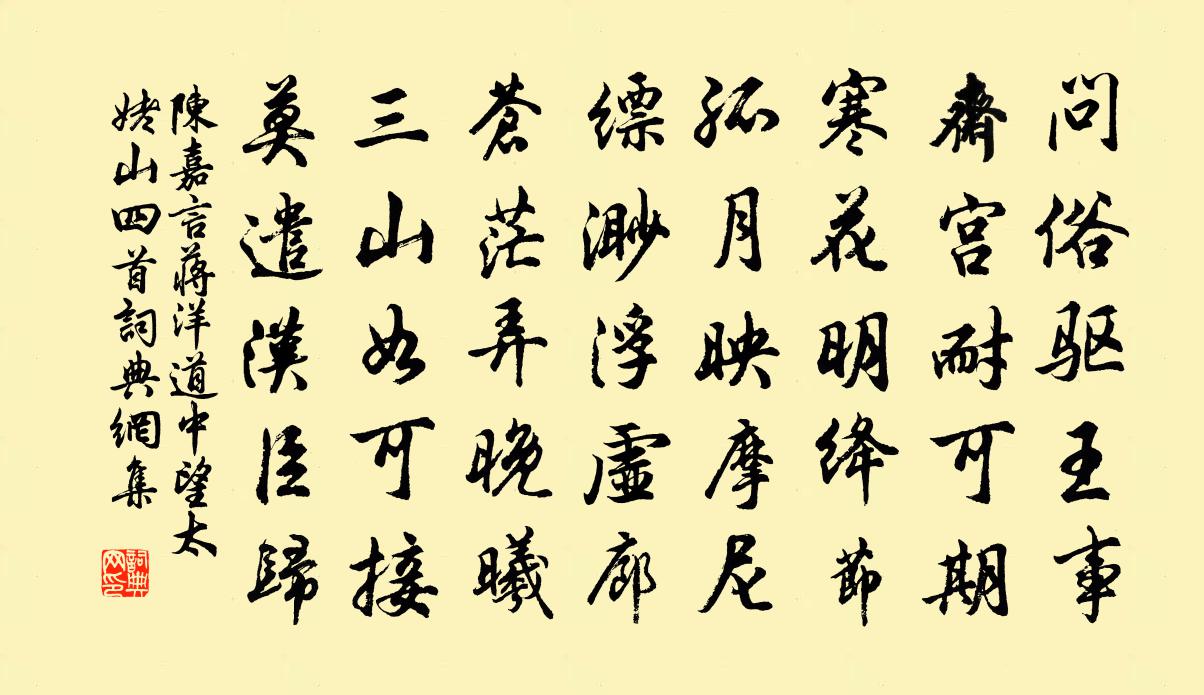 问俗驱王事
齋宫耐可期
寒花明绛節
孤月映摩尼
缥渺浮虛廊
蒼茫弄晚曦
三山如可接
莫遣漢臣歸
陳嘉言蔣洋道中望太
姥山四首詞典網集
詞典網印